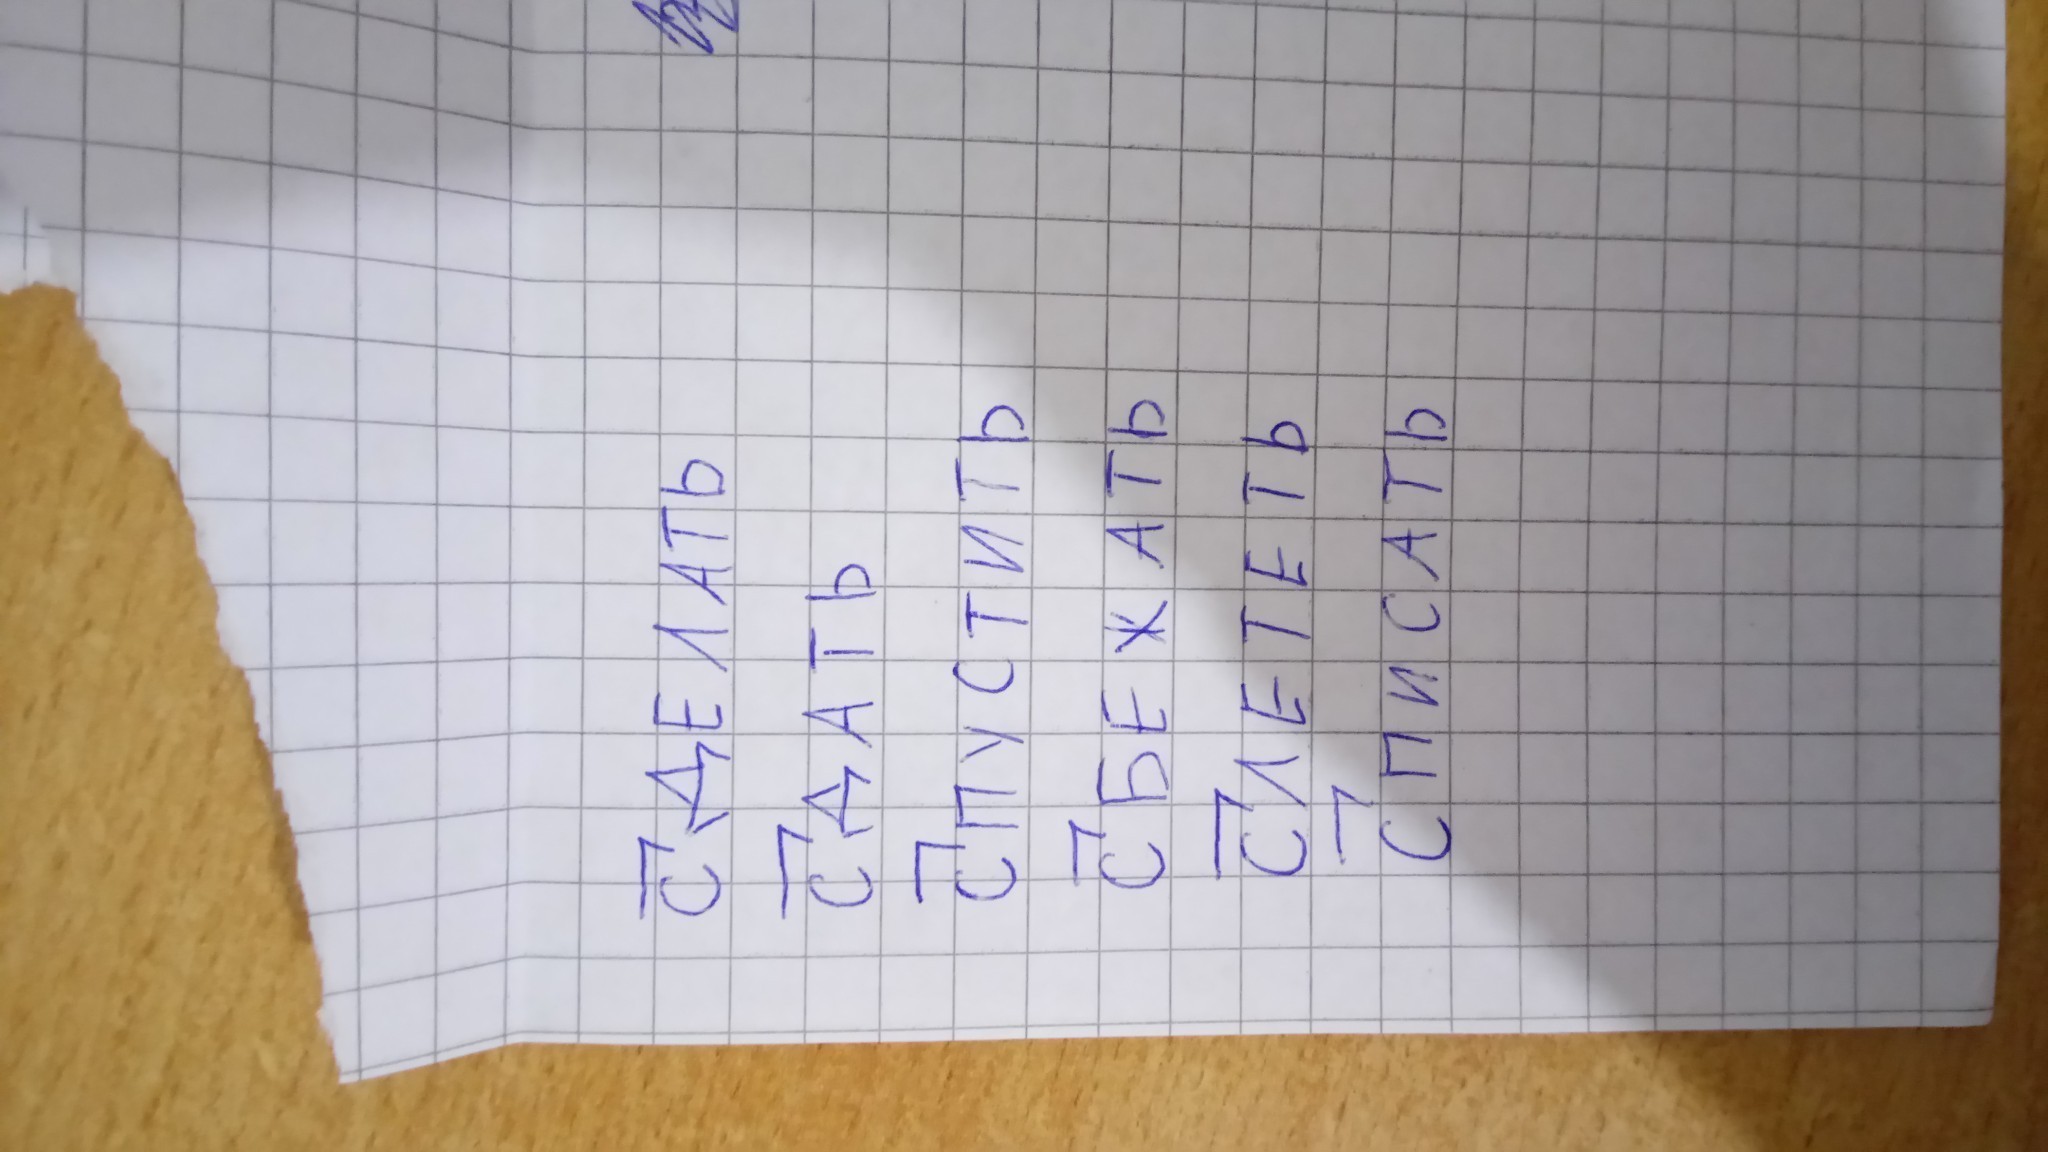 СДЕЛАТЬ
СДАТЬ
СПУСТИТЬ
СБЕЖАТЬ
СЛЕТЕТЬ
СПИСАТЬ